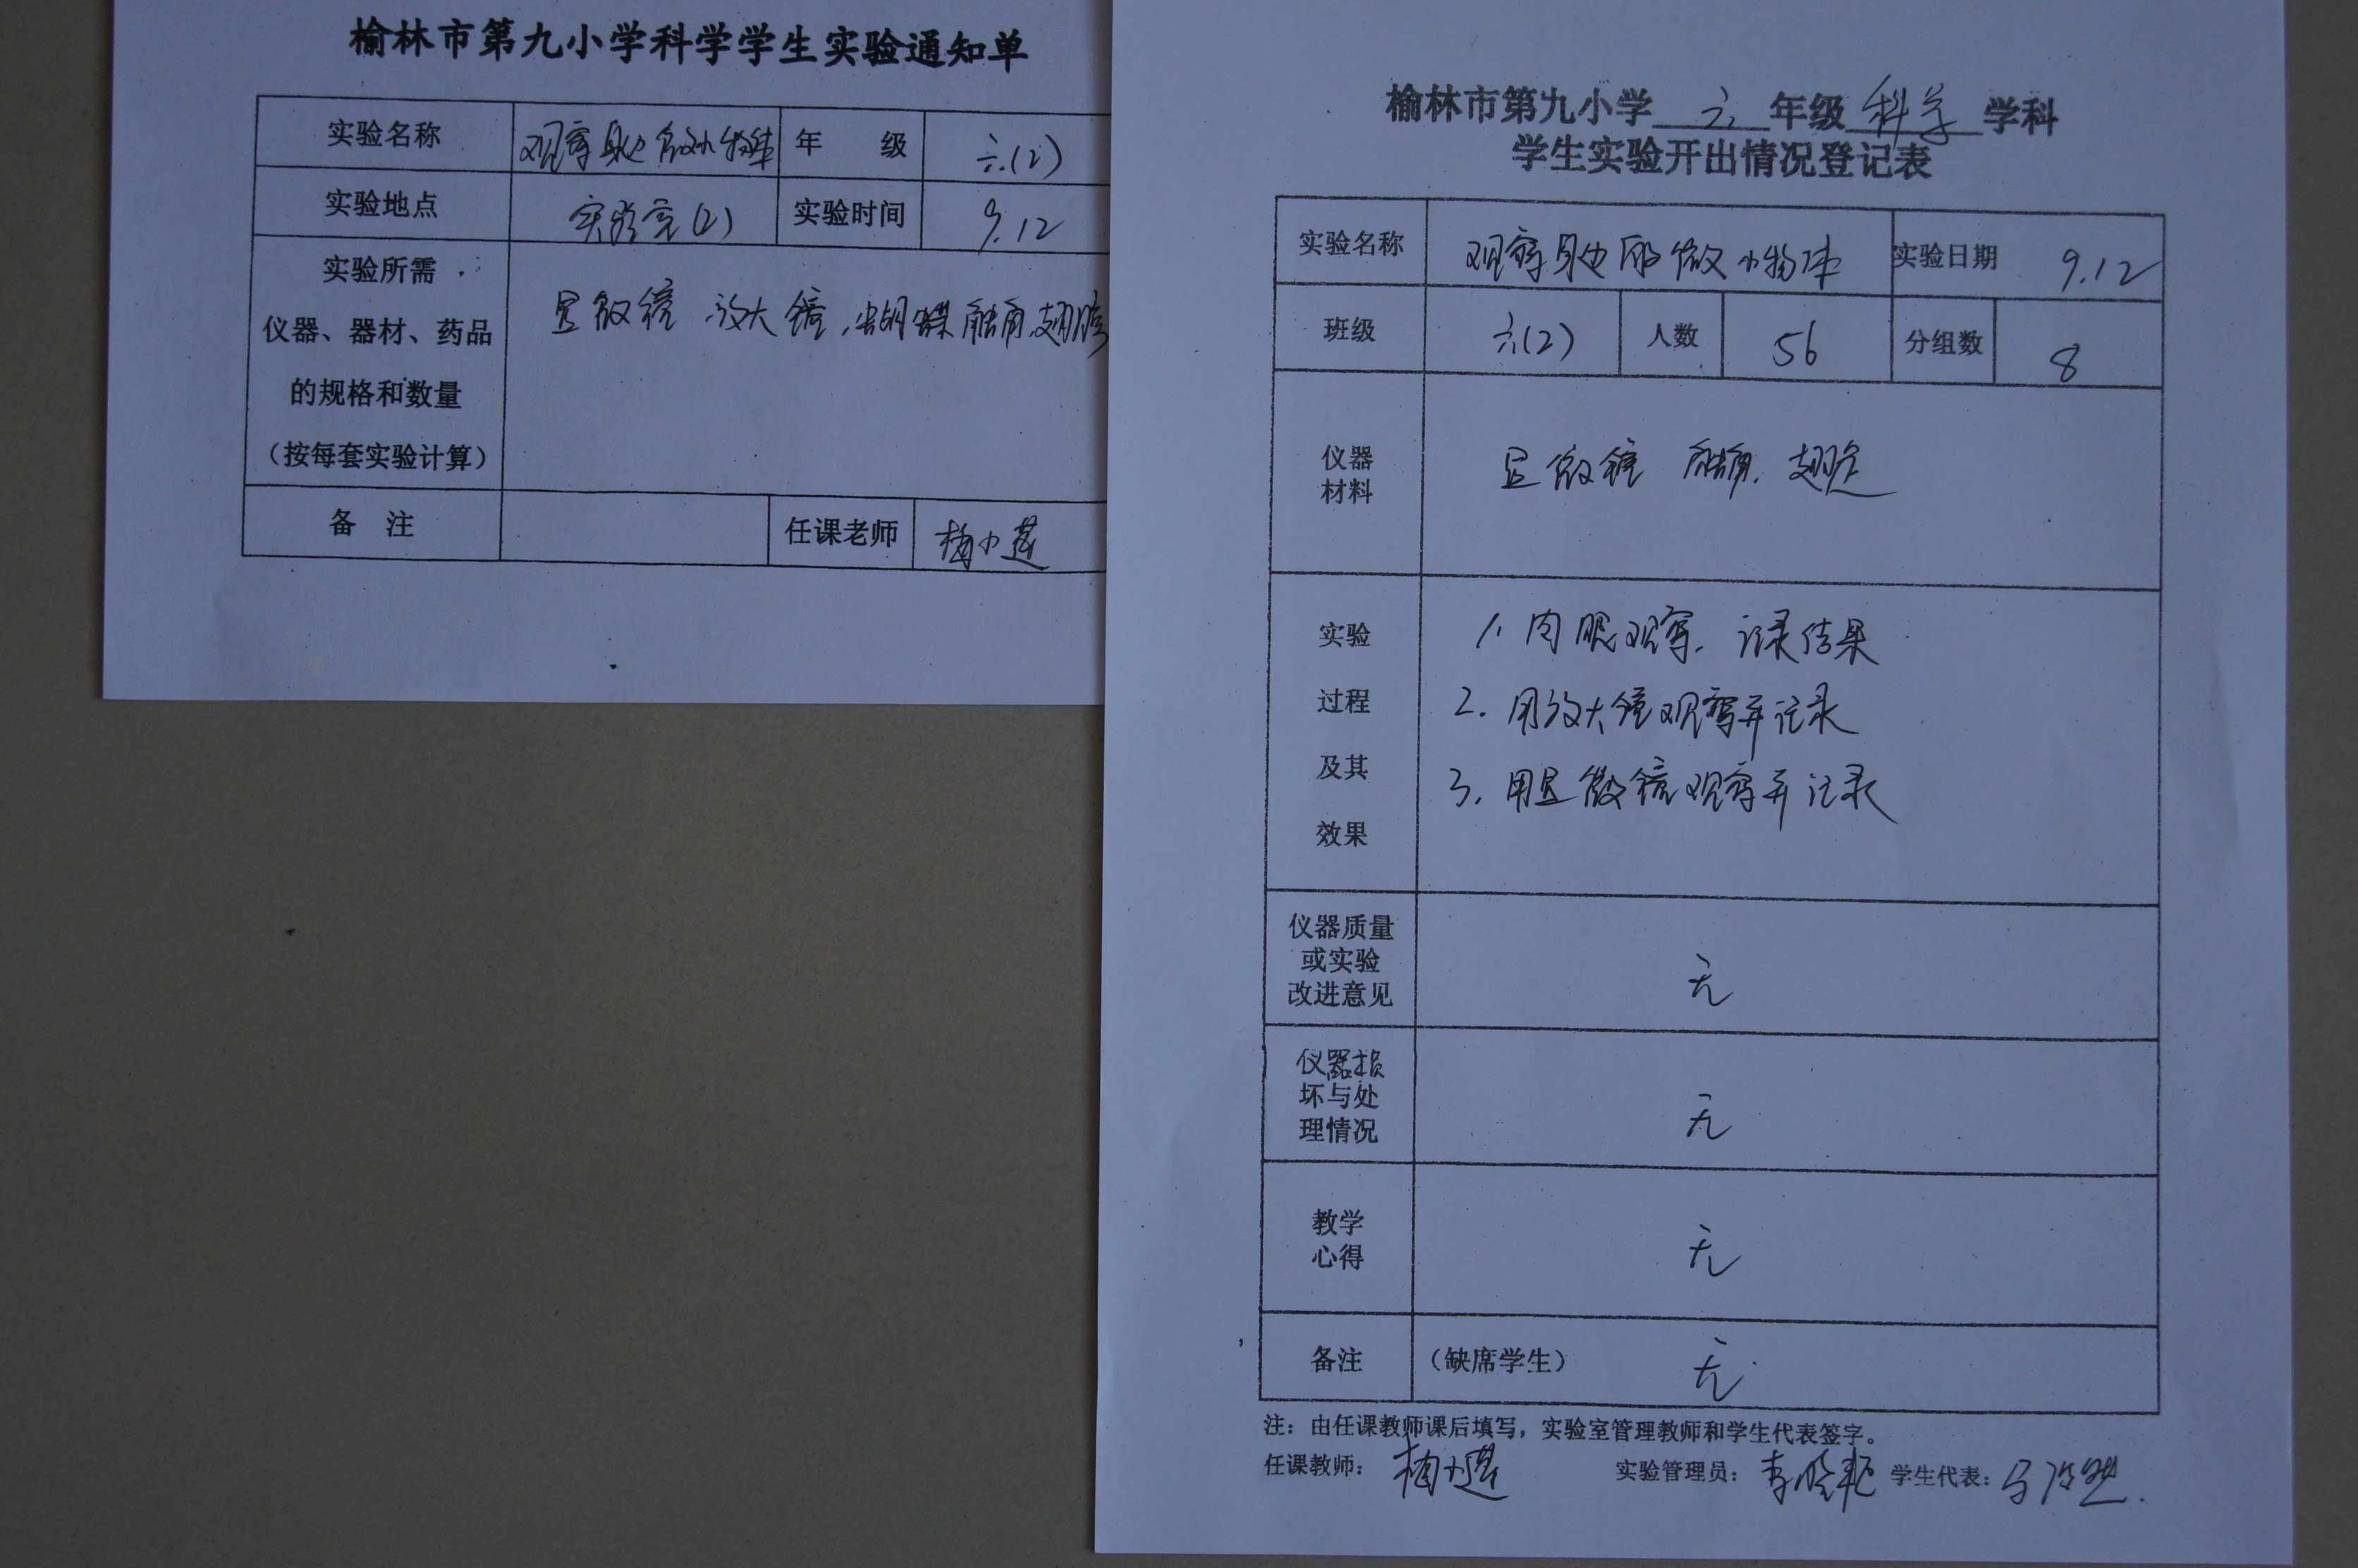 榆林市第九小学科学学生实验通知单
实验名称 观察身边微小物体 年 级 六(2)
实验地点 实验室(2) 实验时间 9.12
实验所需
仪器、器材、药品
的规格和数量
(按每套实验计算)
显微镜 放大镜,蝴蝶触角,翅膀
备 注 任课老师 梅小莲
榆林市第九小学 六 年级 科学 学科
学生实验开出情况登记表
实验名称 观察身边的微小物体 实验日期 9.12
班级 六(2) 人数 56 分组数 8
仪器
材料
显微镜 触角. 翅膀
实验
过程
及其
效果
1. 肉眼观察. 记录结果
2. 用放大镜观察并记录
3. 用显微镜观察并记录
仪器质量
或实验
改进意见
无
仪器损
坏与处
理情况
无
教学
心得
无
备注 (缺席学生) 无
注:由任课教师课后填写,实验室管理教师和学生代表签字。
任课教师: 梅小莲 实验管理员: 李晓艳 学生代表: